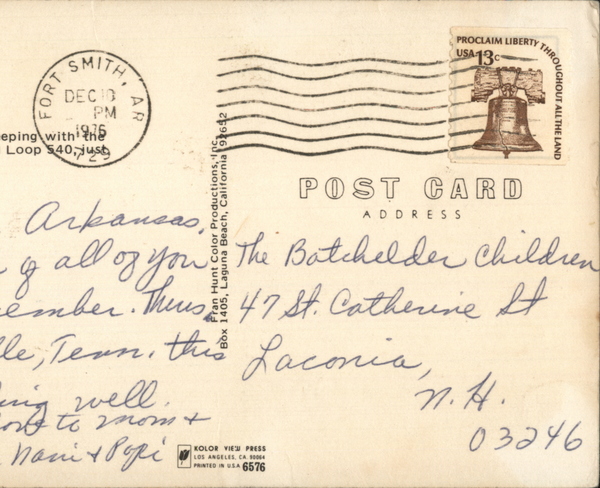 FORT SMITH, AR
DEC 10
PM
1976
729
PROCLAIM LIBERTY THROUGHOUT ALL THE LAND
USA 13c
eeping with the
Loop 540, just
Fran Hunt Color Productions, Inc.
Box 1405, Laguna Beach, California 92652
POST CARD
ADDRESS
Arkansas.
of all of you
ember. Thurs.
lle, Tenn. this
ing well.
to mom &
Nani & Popi
The Batchelder Children
47 St. Catherine St
Laconia,
N.H.
03246
KOLOR VIEW PRESS
LOS ANGELES, CA. 90064
PRINTED IN U.S.A 6576